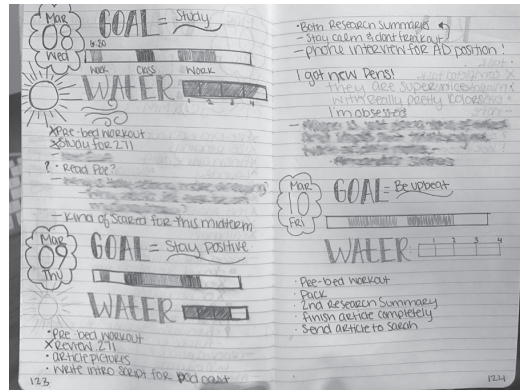 Mar
08
Wed
GOAL = Study
6:30
Work Class Work
WATER
1 2 3 4
x Pre-bed workout
x Study for 271
? • Read Poe?
- Kind of scared for this midterm
Mar
09
Thu
GOAL = Stay positive
WATER
• Pre-bed workout
x Review 271
• article pictures
• Write intro script for podcast
123
• Both Research Summaries
- Stay calm & dont freakout
- phone interview for AD position!
I got new Pens!
they are super nice
with really pretty colors
I'm obsessed
Mar
10
Fri
GOAL = Be upbeat
WATER
1 2 3 4
• Pre-bed workout
• Pack
• 2nd Research Summary
• finish article completely
• Send article to Sarah
124